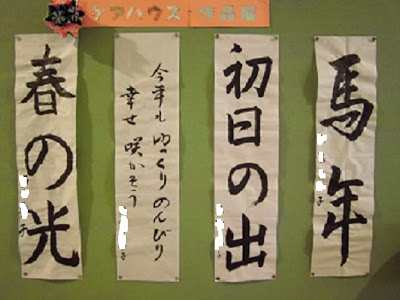 ケアハウス 作品展
馬年
初日の出
今年も ゆっくり のんびり
幸せ 咲かそう
春の光